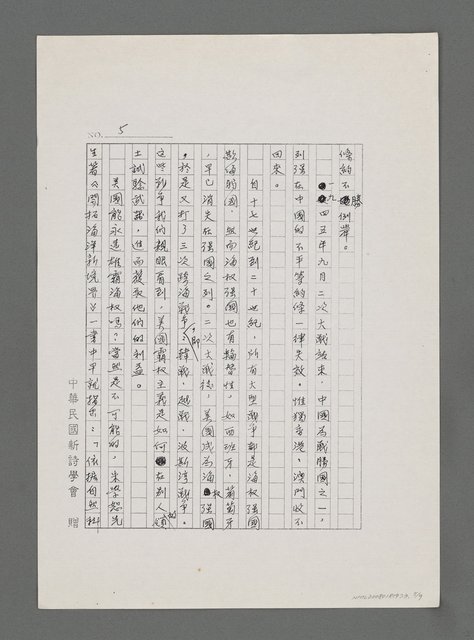 條約不勝例舉。
一九四五年九月二次大戰結束,中國為戰勝國之一,
列強在中國的不平等約條一律失效。惟獨香港、澳門收不
回來。
自十七世紀到二十世紀,所有大型戰爭都是海权強國
欺侮弱國,然而海权強國也有輪替性,如西班牙、葡萄牙
,早已消失在強國之列。二次大戰後,美國成為海权強國
,於是又打了三次跨海戰爭,即韓戰、越戰、波斯湾戰爭。
這些戰爭我们親眼看到,美國霸权主義是如何在別人的領
土試驗武器,進而獲取他们的利益。
美國能永遠雄霸海权嗎?當然是不可能的,宋學恕先
生著《開拓海洋新境界》一書中早就指出:「依據自然科
中華民國新詩學會 贈
NO. 5